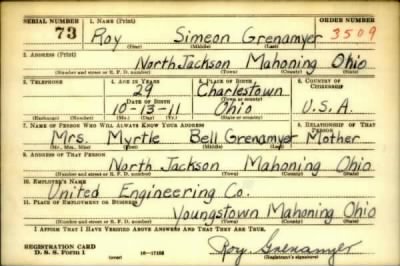 SERIAL NUMBER 1. NAME (Print) ORDER NUMBER
73 Roy Simeon Grenamyer 3509
(First) (Middle) (Last)
2. ADDRESS (Print)
North Jackson Mahoning Ohio
(Number and street or R. F. D. number) (Town) (County) (State)
3. TELEPHONE 4. AGE IN YEARS 5. PLACE OF BIRTH 6. COUNTRY OF CITIZENSHIP
29 Charlestown
DATE OF BIRTH (Town or county)
10-13-11 Ohio U.S.A.
7. NAME OF PERSON WHO WILL ALWAYS KNOW YOUR ADDRESS 8. RELATIONSHIP OF THAT PERSON
Mrs. Myrtle Bell Grenamyer Mother
(Mr., Mrs., Miss) (First) (Middle) (Last)
9. ADDRESS OF THAT PERSON
North Jackson Mahoning Ohio
(Number and street or R. F. D. number) (Town) (County) (State)
10. EMPLOYER'S NAME
United Engineering Co.
11. PLACE OF EMPLOYMENT OR BUSINESS
Youngstown Mahoning Ohio
(Number and street or R. F. D. number) (Town) (County) (State)
I AFFIRM THAT I HAVE VERIFIED ABOVE ANSWERS AND THAT THEY ARE TRUE.
REGISTRATION CARD
D. S. S. Form 1 (over) Roy Grenamyer
(Registrant's signature)